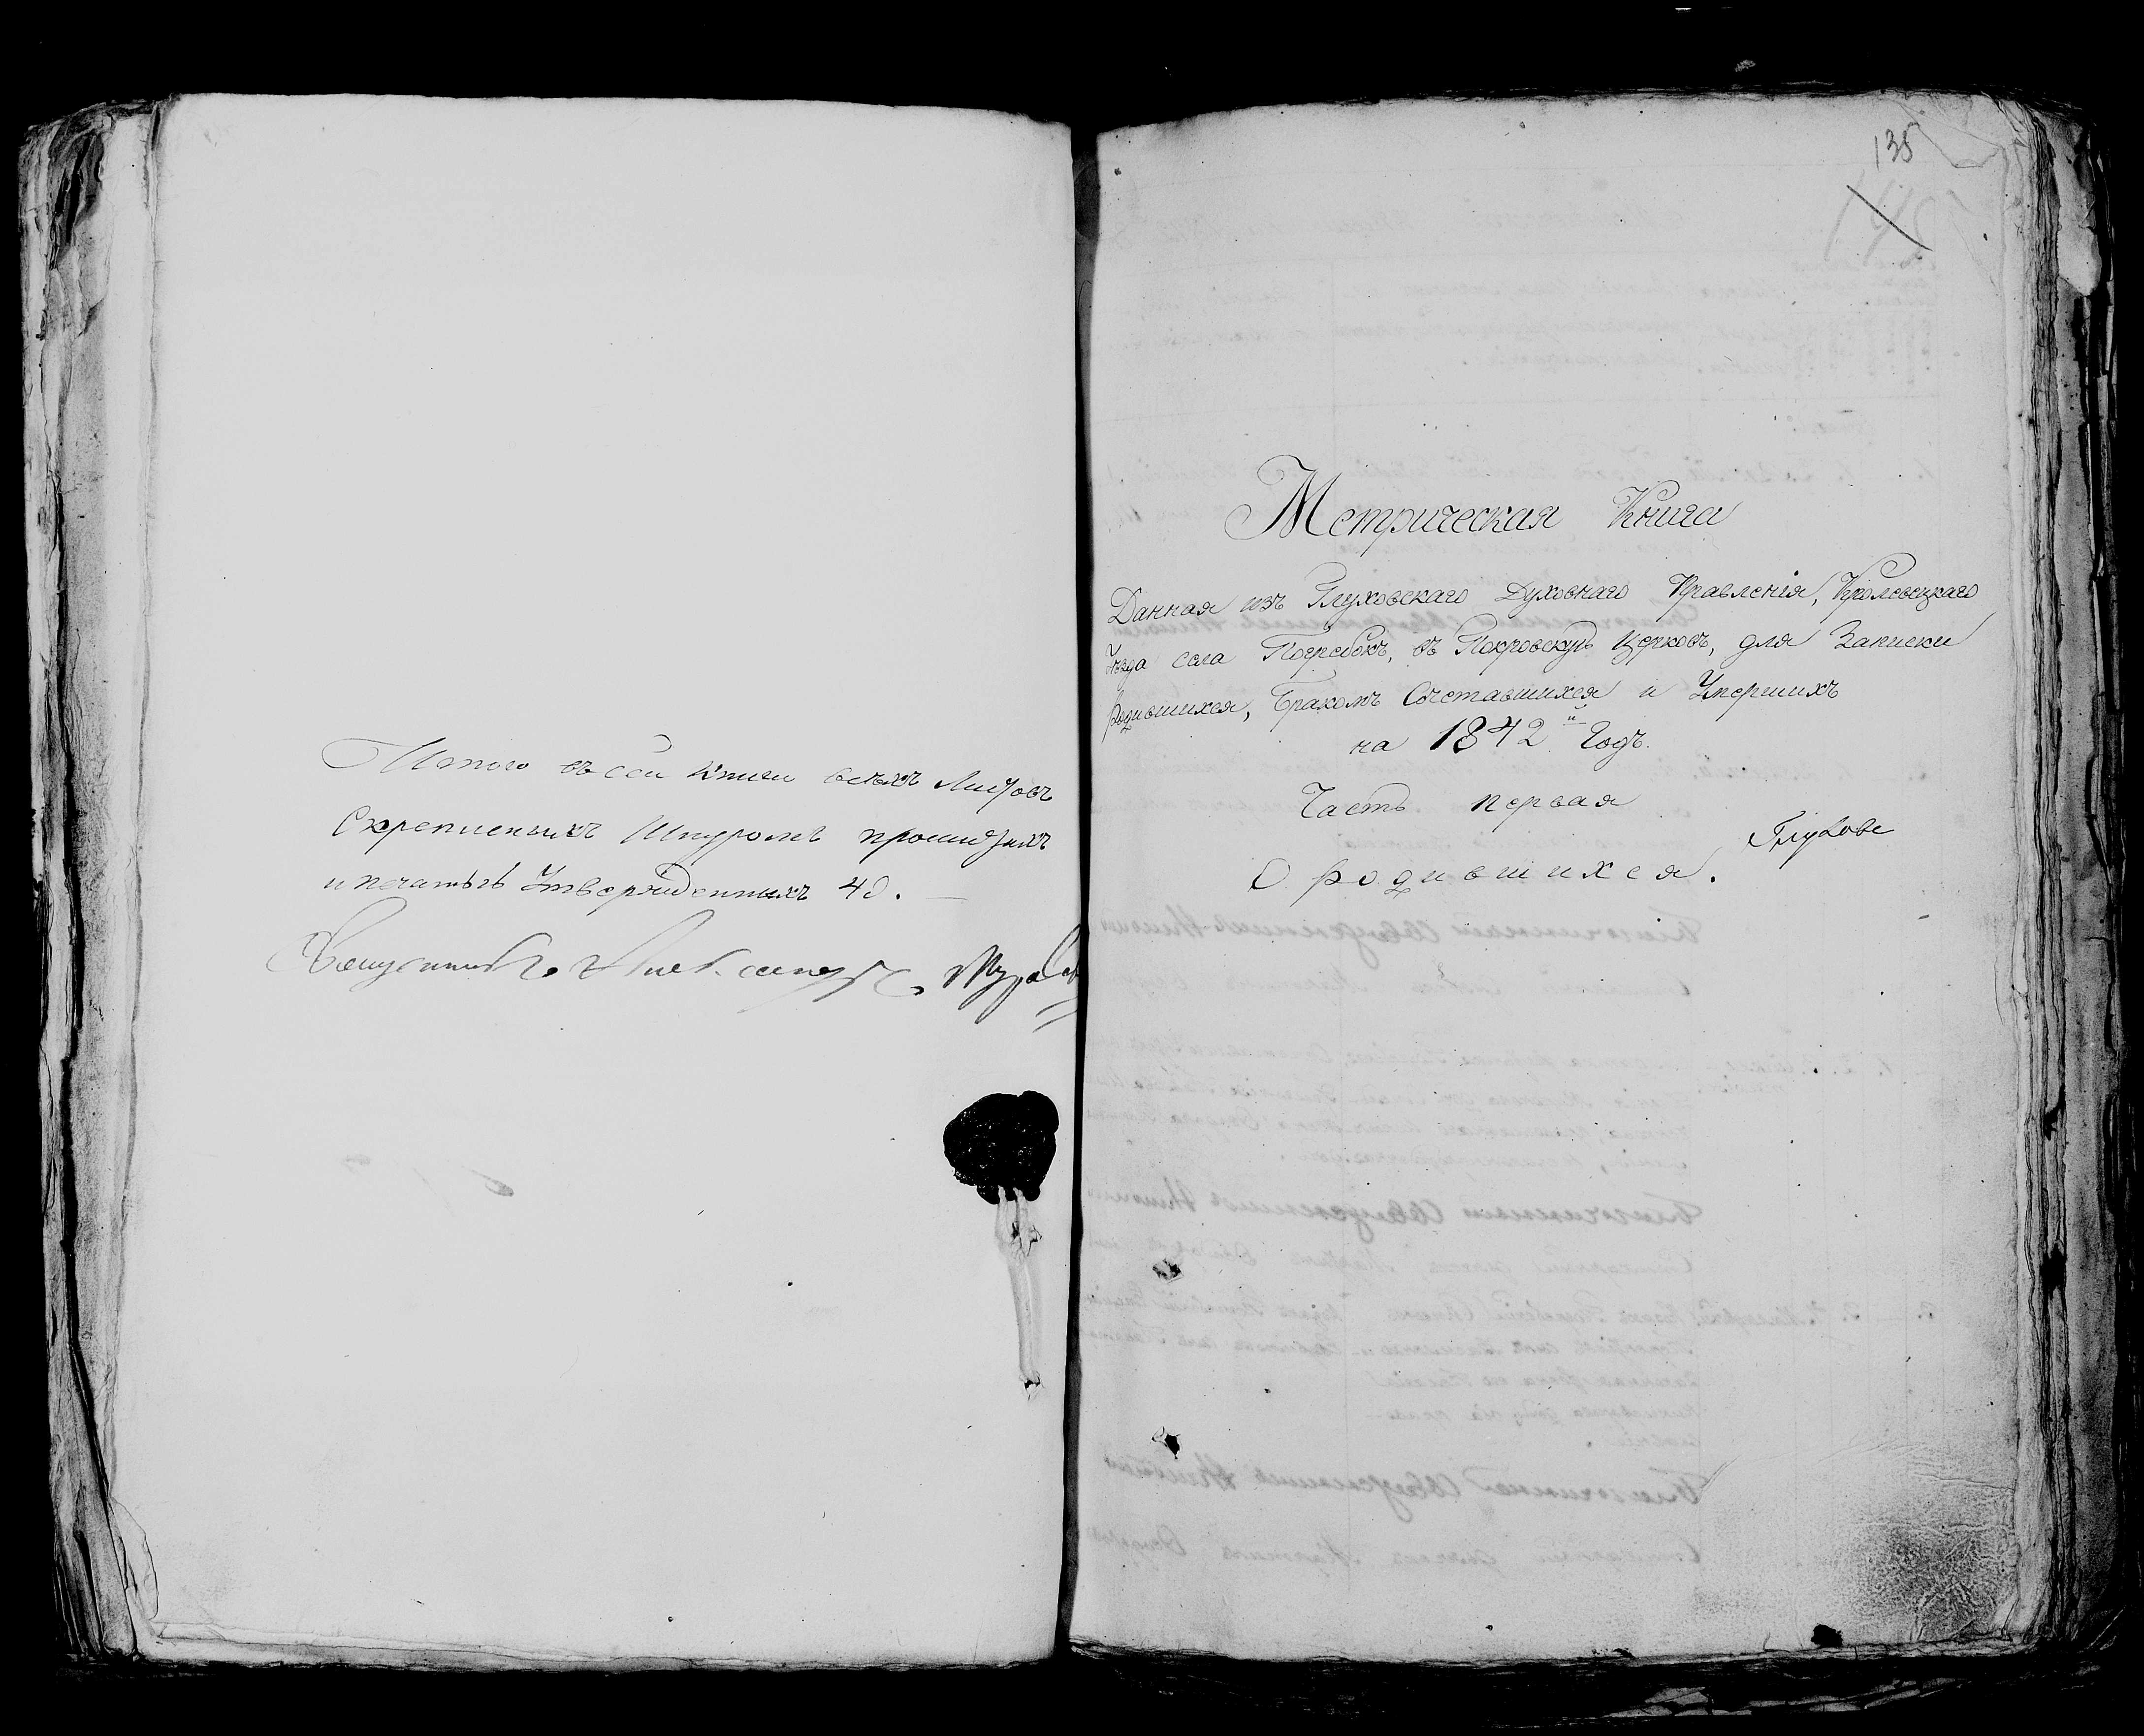 Итого въ сей Книги всѣхъ Листовъ
Скрепленныхъ Шнуромъ прошитыхъ
и печатью Утвержденныхъ 40.
Священникъ Александръ
135
Метрическая Книга
Данная изъ Глуховскаго Духовнаго Правленія, Кролевецкаго
Уезда села Погребокъ, въ Покровскую Церковь, для Записки
родившихся, Бракомъ Сочетавшихся и Умершихъ
на 1842й Годъ.
Часть первая
О родившихся.